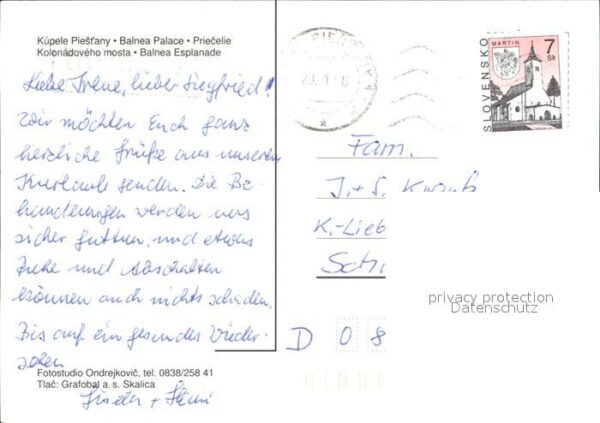 Kúpele Piešťany • Balnea Palace • Priečelie
Kolonádového mosta • Balnea Esplanade
Liebe Irene, lieber Siegfried!
Wir möchten Euch ganz
herzliche Grüße aus unserem
Kurlaub senden. Die Be-
handlungen werden uns
sicher guttun, und etwas
Ruhe und Abschalten
können auch nichts schaden.
Bis auf ein gesundes Wieder-
sehen
Fotostudio Ondrejkovič, tel. 0838/258 41
Tlač: Grafobal a. s. Skalica
SLOVENSKO
MARTIN
7
Sk
Fam.
J. + S.
K.-Lieb
Sch
privacy protection
Datenschutz
D 0 8